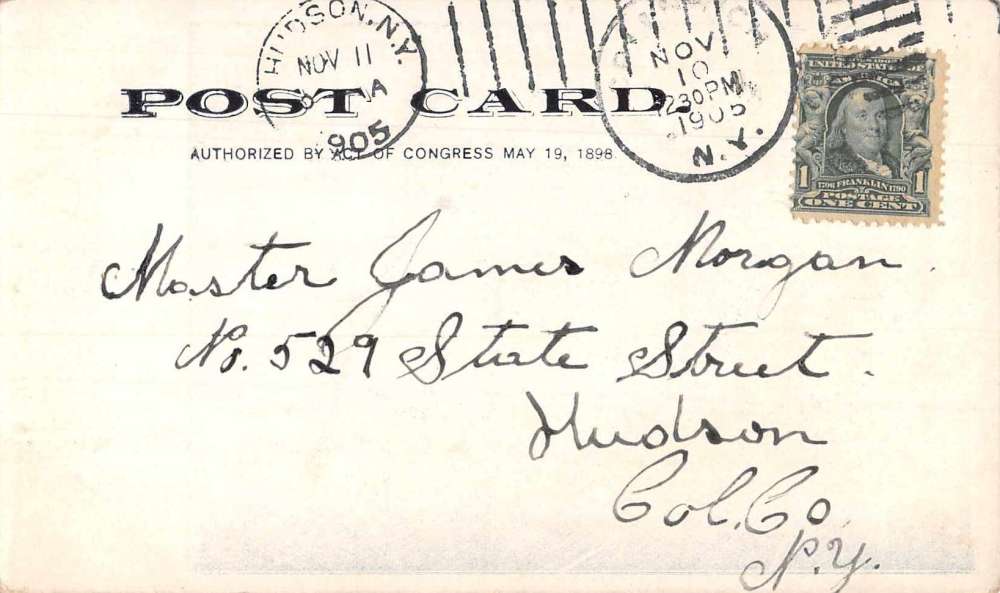 HUDSON, N.Y.
NOV 11
A
1905
NOV
10
230PM
1905
N.Y.
UNITED STATES
1 1
1706 FRANKLIN 1790
POSTAGE
ONE CENT
POST CARD.
AUTHORIZED BY ACT OF CONGRESS MAY 19, 1898.
Master James Morgan.
No. 529 State Street.
Hudson
Col. Co.
N.Y.